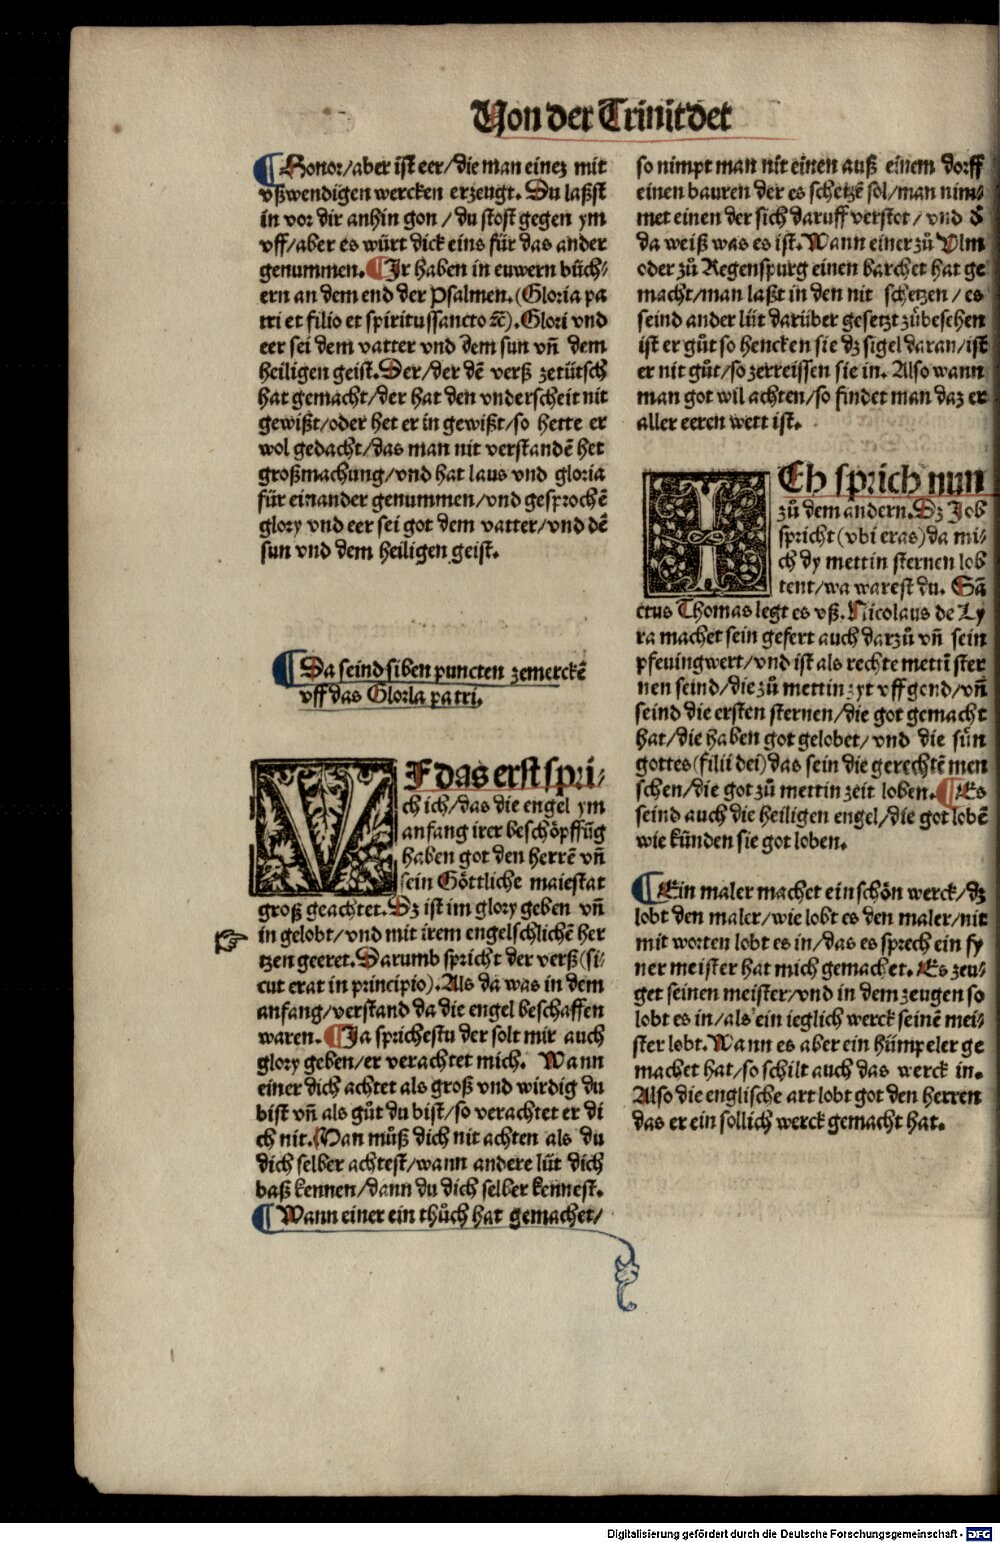 Von der Trinitdet
¶ Honor/aber ist eer/die man einez mit
vßwendigen wercken erzeugt. Du laßst
in vor dir anhin gon / du stost gegen ym
vff/aber es würt dick eins für das ander
genummen. ¶ Jr haben in euwern büch⸗
ern an dem end der Psalmen. (Gloria pa
tri et filio et spiritussancto ꝛc̄). Glori vnd
eer sei dem vatter vnd dem sun vñ dem
heiligen geist. Der/der dē verß zetütsch
hat gemacht/der hat den vnderscheit nit
gewißt/oder het er in gewißt/so hette er
wol gedacht/das man nit verstandē het
großmachung/vnd hat laus vnd gloria
für einander genummen/vnd gesprochē
glory vnd eer sei got dem vatter/vnd dē
sun vnd dem heiligen geist.
¶ Da seind siben puncten zemerckē
vff das Glorla patri.
VF das erst spri⸗
ch ich/das die engel ym
anfang irer beschöpffūg
haben got den herrē vñ
sein Göttliche maiestat
groß geachtet. Dz ist im glory geben vñ
in gelobt/vnd mit irem engelschlichē her
tzen geeret. Darumb spricht der verß (si⸗
cut erat in principio). Als da was in dem
anfang/verstand da die engel beschaffen
waren. ¶ Ja sprichestu der solt mir auch
glory geben/er verachtet mich. Wann
einer dich achtet als groß vnd wirdig du
bist vñ als gůt du bist/so verachtet er di
ch nit. Man můß dich nit achten als du
dich selber achtest/wann andere lüt dich
baß kennen/dann du dich selber kennest.
¶ Wann einer ein thůch hat gemachet/
so nimpt man nit einen auß einem dorff
einen bauren der es schetzē sol/man nim⸗
met einen der sich daruff verstot/ vnd d̄
da weiß was es ist. Wann einer zů Vlm
oder zů Regenspurg einen barchet hat ge
macht/man laßt in den nit schetzen / es
seind ander lüt darüber gesetzt zůbesehen
ist er gůt so hencken sie dz sigel daran/ist
er nit gůt/so zerreissen sie in. Also wann
man got wil achten/so findet man daz er
aller eeren wert ist.
ICh sprich nun
zů dem andern. Dz Job
spricht (vbi eras) da mi⸗
ch dy mettin sternen lob
tent/wa warest du. Sā
ctus Thomas legt es vß. Nicolaus de Ly
ra machet sein gefert auch darzů vñ sein
pfeningwert/vnd ist als rechte mettī ster
nen seind/die zů mettin zyt vffgend/vñ
seind die ersten sternen/die got gemacht
hat/die haben got gelobet/vnd die sün
gottes (filii dei) das sein die gerechtē men
schen/die got zů mettin zeit loben. ¶ Es
seind auch die heiligen engel/die got lobē
wie künden sie got loben.
¶ Ein maler machet ein schön werck/dz
lobt den maler/wie lobt es den maler/nit
mit worten lobt es in/das es sprech ein fy
ner meister hat mich gemachet. Es zeu⸗
get seinen meister/vnd in dem zeugen so
lobt es in/als ein ieglich werck seinē mei⸗
ster lobt. Wann es aber ein hümpeler ge
machet hat/so schilt auch das werck in.
Also die englische art lobt got den herren
das er ein sollich werck gemacht hat.
Digitalisierung gefördert durch die Deutsche Forschungsgemeinschaft - DFG